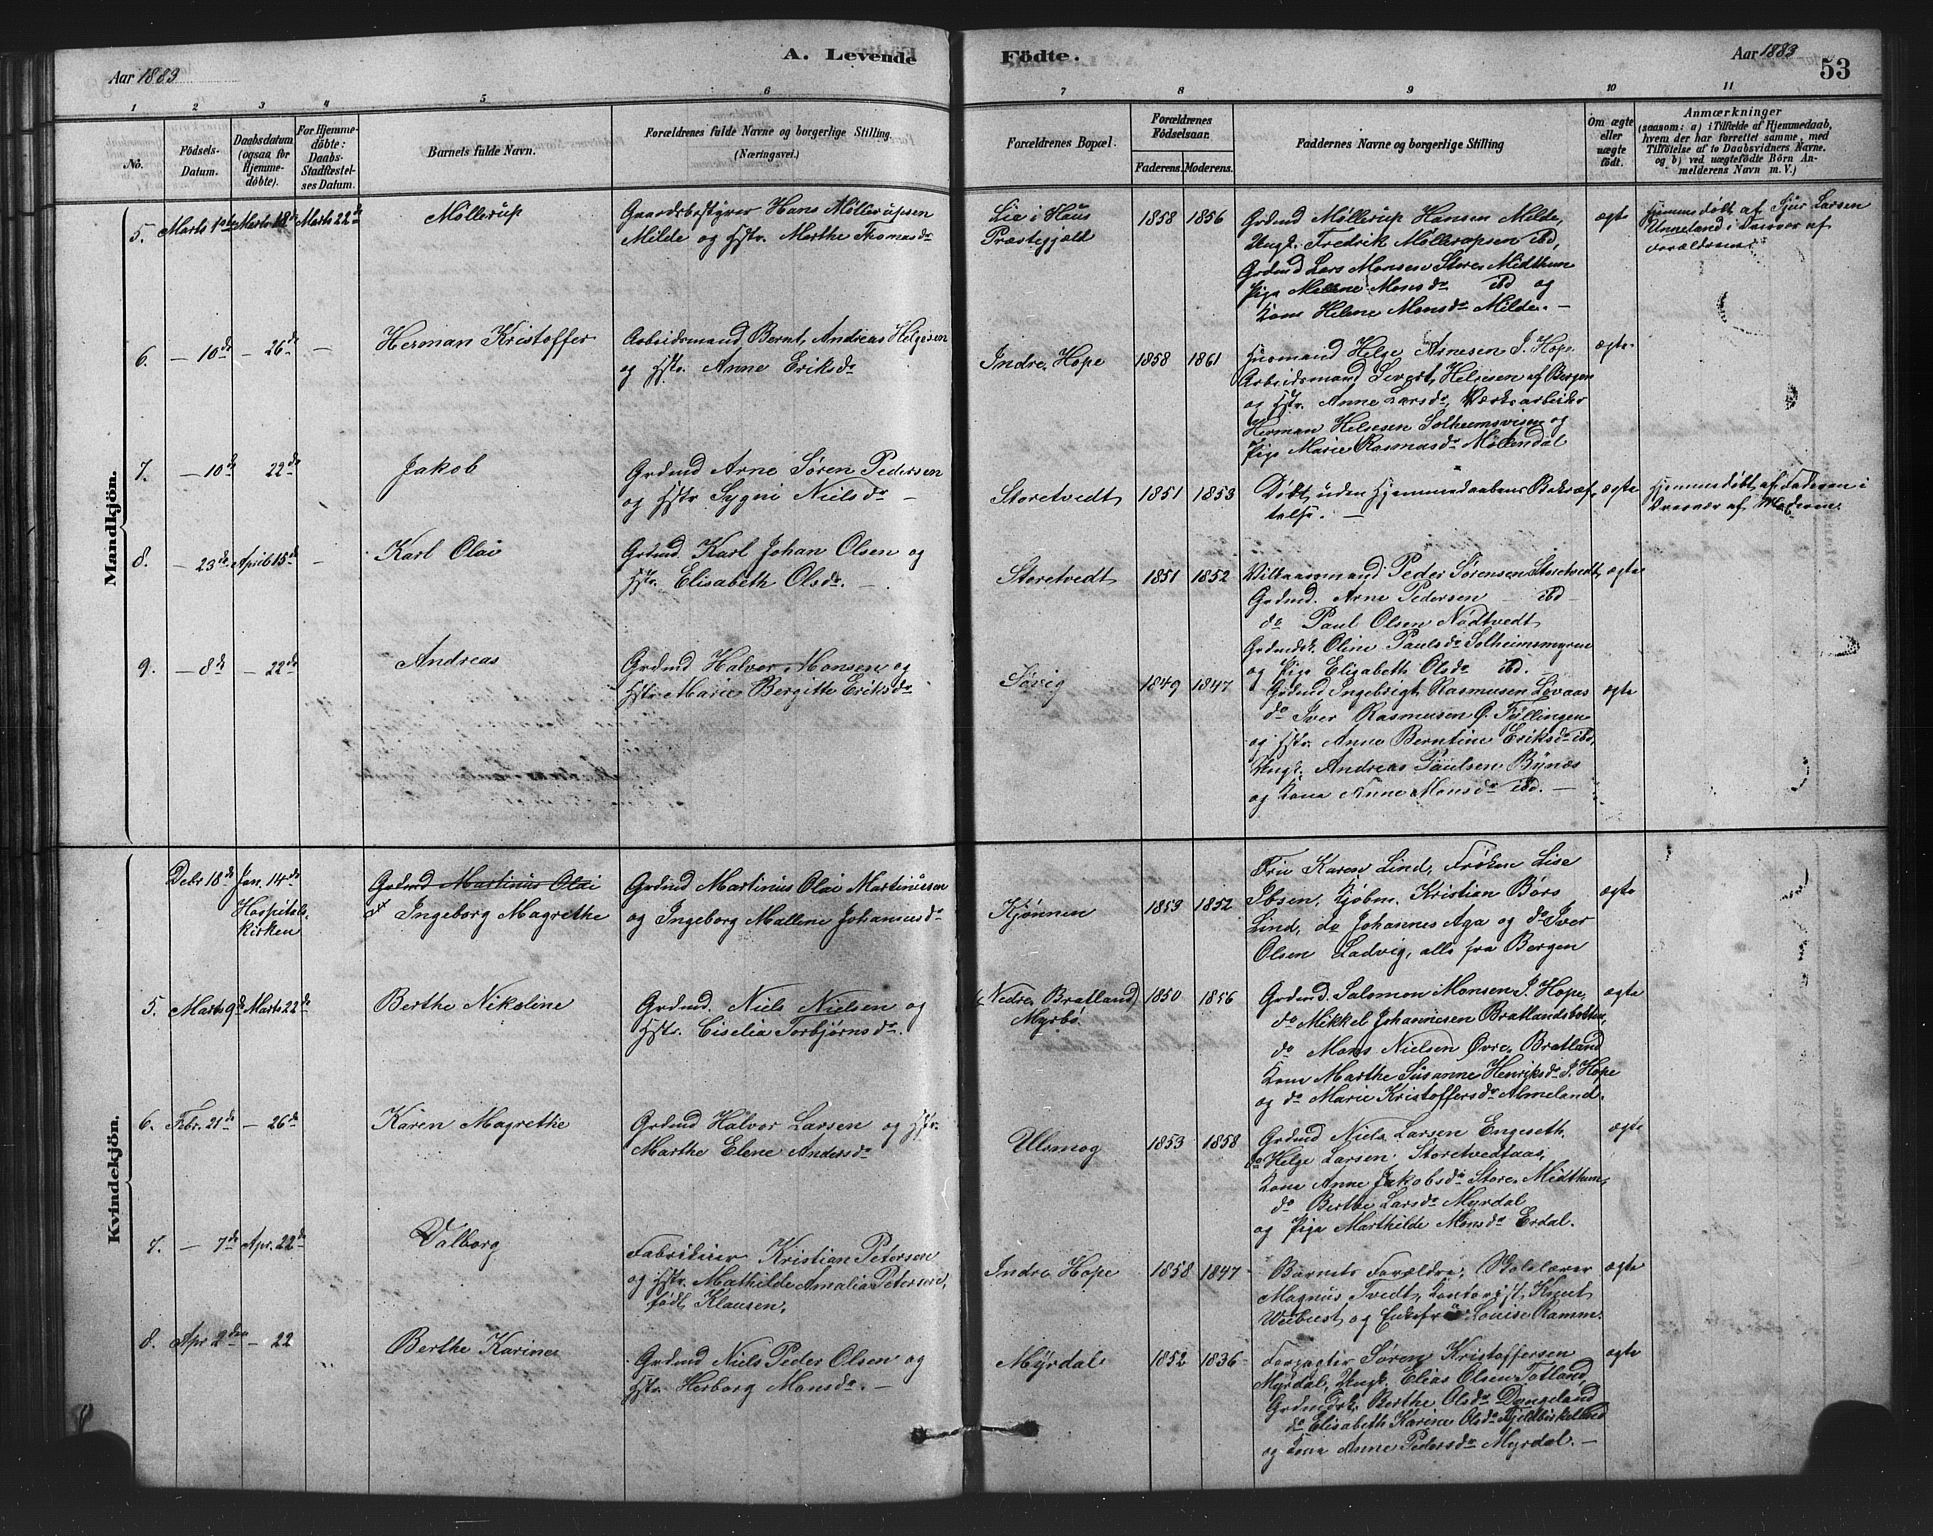 Aar 1883
A. Levende
Fødte.
Aar 1883
53
1 2 3 4 5 6 7 8 9 10 11
No.
Födsels-
Datum.
Daabsdatum
(ogsaa for
Hjemme-
døbte).
For Hjemme-
döbte:
Daabs-
Stadfæstel-
ses Datum.
Barnets fulde Navn.
Forældrenes fulde Navne og borgerlige Stilling.
(Næringsvei.)
Forældrenes Bopæl.
Forældrenes
Födselsaar.
Faderens. Moderens.
Faddernes Navne og borgerlige Stilling
Om ægte
eller
uægte
født.
Anmærkninger
(saasom: a) i Tilfælde af Hjemmedaab,
hvem der har forrettet samme, med
Tilföielse af to Daabsvidners Navne.
og b) ved uægtefödte Börn An-
melderens Navn m. V.)
Mandkjön.
5. Marts Marts 18de Marts 22de
Møllerup
Gaardsbestyrer Hans Møllerupsen
Milde og Hstr. Marthe Thomasdr
Lie i Haus
Præstegjeld
1858 1856
Grdmd Møllerup Hansen Milde,
Ungk. Fredrik Møllerupsen ibd,
Grdmd Lars Monsen Store Midthun
Pige Malene Monsdr ibd og
Kone Helene Monsdr Milde. —
ægte
Hjemmedøbt af Sjur Larsen
Unneland i Nærvær af
Forældrene.
6. — 10de — 26de —
Herman Kristoffer
Arbeidsmand Bernt Andreas Helgesen
og Hstr. Anne Eriksdr
Indre Hope
1858 1861
Husmand Helge Arnesen I. Hope
Arbeidsmand Sivert Helgesen af Bergen
og Hstr. Anne Larsdr, Værksarbeider
Herman Helgesen Solheimsviken og
Pige Marie Rasmusdr Møllendal
ægte
7. — 10de 22de
Jakob
Grdmd Arne Søren Pedersen
og Hstr Sygni Nielsdr —
Storetvedt
1851 1853
Døbt uden Hjemmedaabens Bekræf-
telse. —
ægte
Hjemmedøbt af Faderen i
Nærvær af Moderen.
8. — 23de April 15de —
Karl Olai
Grdmd. Karl Johan Olsen og
Hstr. Elisabeth Olsdr. —
Storetvedt
1851 1852
Vilkaarsmand Peder Sørensen Storetvedt,
Grdmd. Arne Pedersen — ibd —
do Paul Olsen Nødtvedt
Grdmdsk. Oline Paulsdr Solheimsmyren
og Pige Elisabeth Olsdr ibd.
ægte
9. — 8de — 22de
Andreas
Grdmd Halvor Monsen og
Hstr. Marie Bergitte Eriksdr
Sørvig
1849 1847
Grdmd Ingebrigt Rasmusen Løvaas
do Iver Rasmusen Ø. Fyllingen
og Hstr. Anne Berntine Eriksdr ibd,
Ungk. Andreas Paulsen Bønæs
og Kone Anne Monsdr ibd. —
ægte
Kvindekjön.
Debr 18de Jan. 14de
Hospitals-
kirken
Grdmd Martinus Olai
Ingeborg Magrethe
Grdmd Martinus Olai Martinusen
og Ingeborg Mallene Johannesdr
Kjønnen
1853 1852
Fru Karen Lind, Frøken Lise
Ibsen, Kjøbm. Kristian Børs
Lind, do Johannes Aga og do Iver
Olsen Ladvig, alle fra Bergen
ægte
5. Marts 9de Marts 22de
Berthe Nikoline
Grdmd. Niels Nielsen og
Hstr. Cicelia Torbjørnsdr.
Nedre Bratland
Myrbø
1850 1856
Grdmd. Salomon Monsen I. Hope,
do Mikkel Johannesen Bratlandsbotten,
do Mons Nielsen Øvre Bratland
Kone Marthe Susanne Henriksdr I. Hope
og do Marie Kristoffersdr Almeland.
ægte
6. Febr. 21de — 26de
Karen Magrethe
Grdmd Halvor Larsen og Hstr
Marthe Elene Andersdr
Ulsmog
1853 1858
Grdmd Niels Larsen Engeseth
do Helge Larsen Storetvedtaas,
Kone Anne Jakobsdr Store Midthun,
do Berthe Larsdr Myrdal
og Pige Marthilde Monsdr Erdal.
ægte
7. — 7de Apr. 22de
Valborg
Fabrikeier Kristian Petersen
og Hstr. Mathilde Amalia Petersen,
født Klausen.
Indre Hope
1858 1847
Barnets Forældre, Skolelærer
Magnus Tvedt, Kontorist Knut
og Enkefru Louise Ramm.
ægte
8. Apr 2den — 22
Berthe Karine
Grdmd Niels Peder Olsen og
Hstr. Herborg Monsdr. —
Myrdal
1852 1836
Forpagter Søren Kristoffersen
Myrdal, Ungk. Elias Olsen Totland,
Grdmdsk. Berthe Olsdr Dyngeland
do Elisabeth Karine Olsdr
og Kone Anne Pedersdr Myrdal. —
ægte